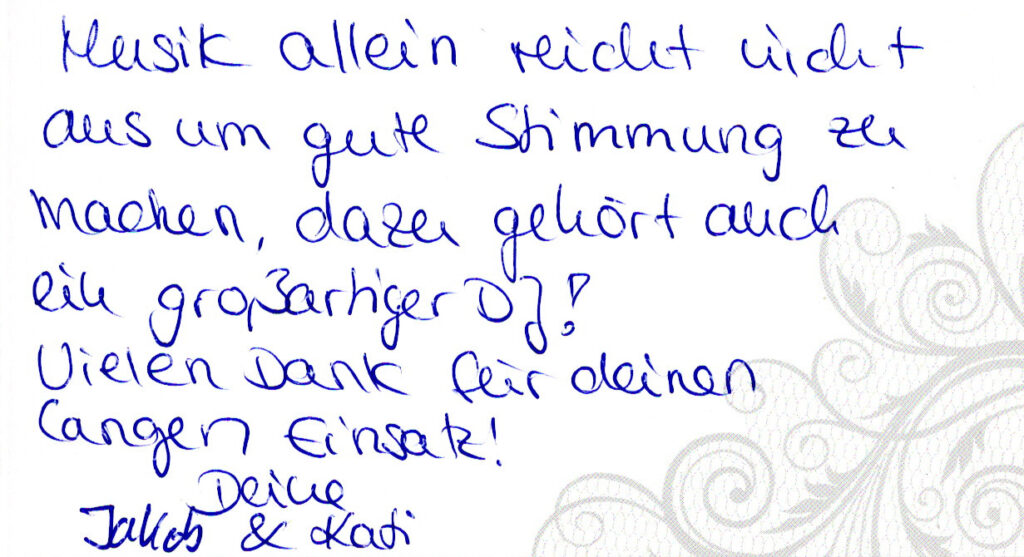 Musik allein reicht nicht
aus um gute Stimmung zu
machen, dazu gehört auch
ein großartiger DJ!
Vielen Dank für deinen
langen Einsatz!
Deine
Jakob & Kati